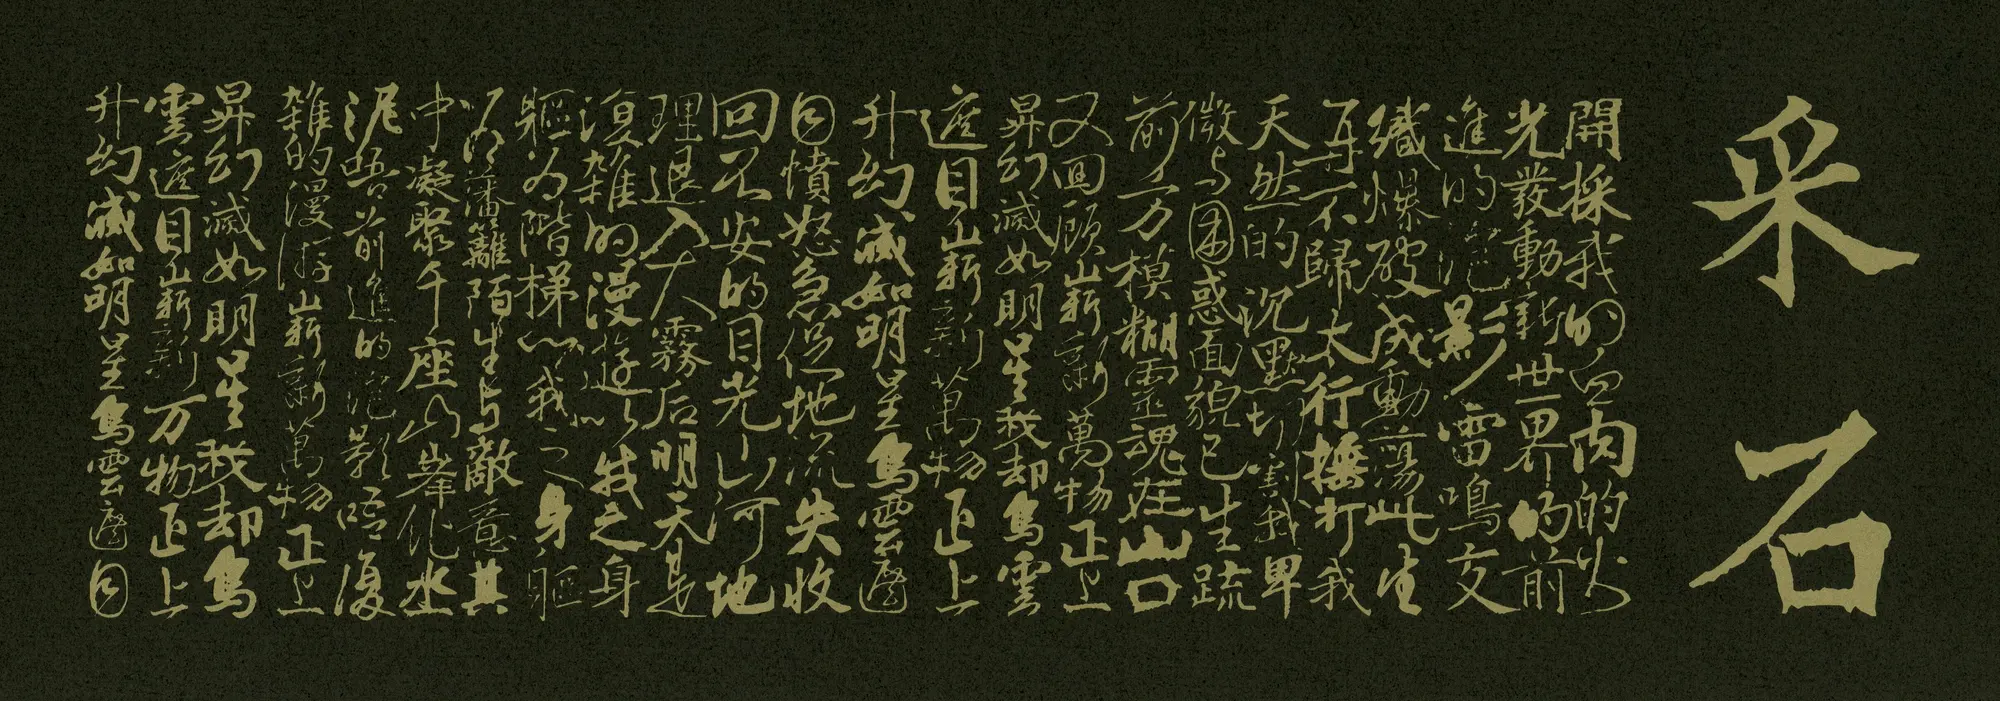 采石
開採我的血肉的火
光發動新世界的前
進的泡影雷鳴交
織爆破成動蕩此生
再不歸太行捶打我
天然的沉默切割我卑
微与困惑面貌已生疏
前方模糊靈魂在山口
又回顧嶄新萬物正上
昇幻滅如明星我却烏雲
遮目嶄新萬物正上
升幻滅如明星烏雲遮
目憤怒急促地流失收
回不安的目光山河地
理退入大霧后明天是
復雜的漫遊以我之身
軀为階梯以我之身軀
以为藩籬陌生与敵意其
中凝聚千座山峯化水
泥唔前進的泡影唔復
雜的漫游嶄新萬物正上
昇幻滅如明星我却烏
雲遮目嶄新万物正上
升幻滅如明星烏雲遮目